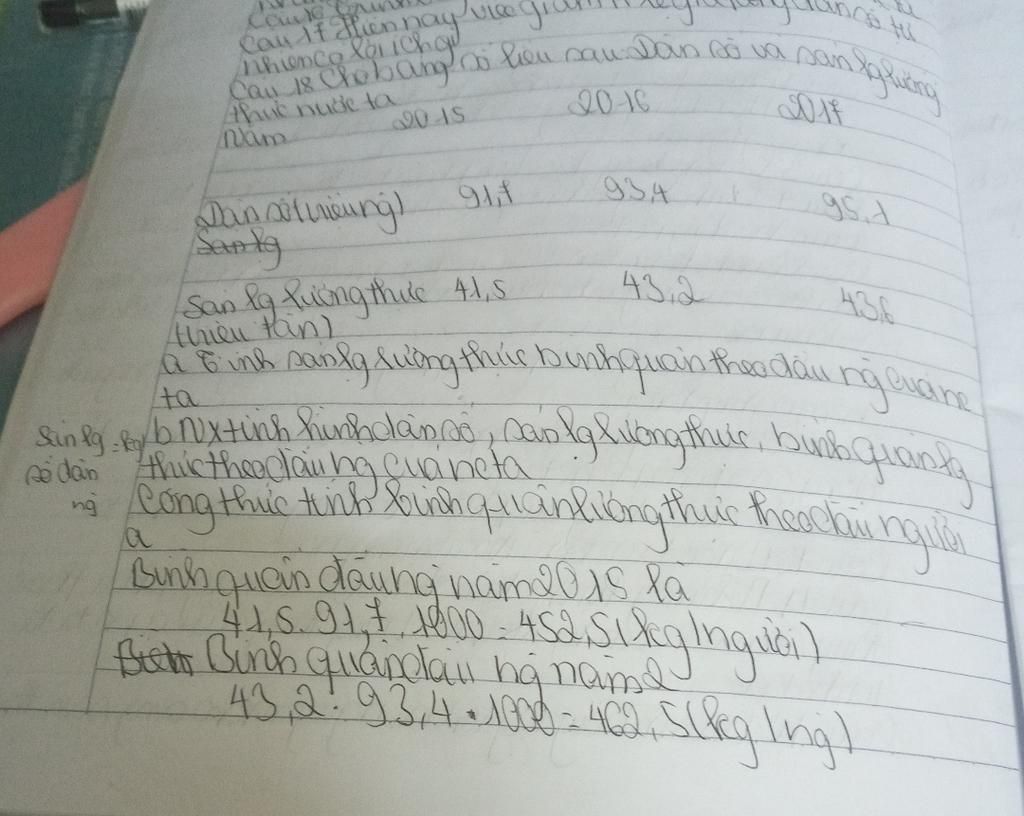 Câu 17 Hiện nay việc giảm tỉ lệ gia tăng dân số tự
nhiên có lợi ích gì
Câu 18 Cho bảng số liệu sau Dân số và sản lg lương
thực nước ta
Năm 2015 2016 2017
Dân số (triệu ng) 91,7 93,4 95,1
Sản lg
Sản lg lương thực 41,5 43,2 43,6
(triệu tấn)
a Tính sản lg lương thực bình quân theo đầu ng của nc
ta
b Nx tình hình dân số, sản lg lương thực, bình quân lg
thực theo đầu ng của nc ta
Sản lg = kg/
số dân ng
Công thức tính bình quân lương thực theo đầu người
a
Bình quân đầu ng năm 2015 là
41,5. 91,7. 1000 = 452,5 (kg/người)
Bình quân đầu ng năm 2
43,2: 93,4 . 1000 = 462,5 (kg/ng)